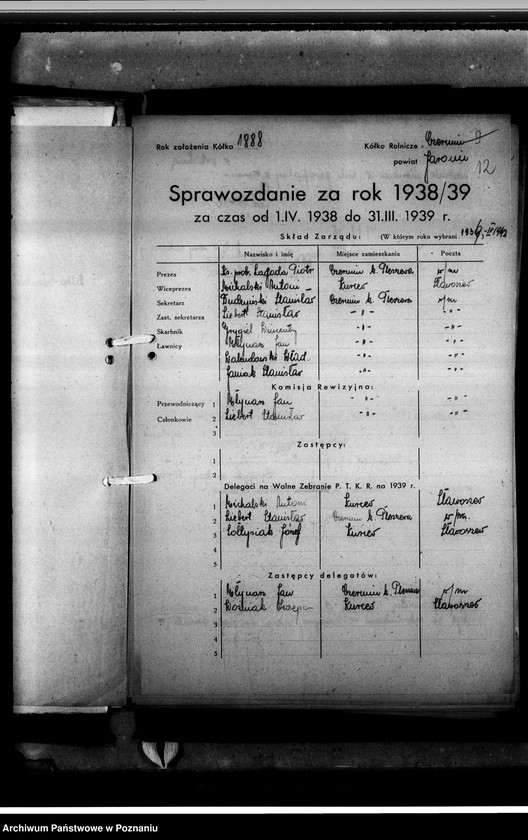 Rok założenia Kółka 1888
Kółko Rolnicze - Czermin
powiat Jarocin
12
Sprawozdanie za rok 1938/39
za czas od 1.IV. 1938 do 31.III. 1939 r.
Skład Zarządu: (W którym roku wybrani
Nazwisko i imię Miejsce zamieszkania Poczta
Prezes Ks. prob. Łagoda Piotr Czermin k. Pleszewa w/m
Wiceprezes Michalski Antoni Łuszczew
Sekretarz Budzyński Stanisław Czermin k. Pleszewa w/m
Zast. sekretarza Liebert Stanisław -"- -"-
Skarbnik Grygiel Wincenty -"- -"-
Ławnicy Młynarz Jan -"- -"-
Walendowski Wład. -"- -"-
Janiak Stanisław -"- -"-
Komisja Rewizyjna:
Przewodniczący 1 Młynarz Jan -"- -"-
Członkowie 2 Liebert Stanisław -"- -"-
3
Zastępcy:
1
2
Delegaci na Walne Zebranie P. T. K. R. na 1939 r.
1 Michalski Antoni
2 Liebert Stanisław Czermin k. Pleszewa w/m.
3 Józef
4
5
Zastępcy delegatów:
1 Młynarz Jan Czermin k. Pleszewa w/m
2 Woźniak Szczepan
3
4
5
Archiwum Państwowe w Poznaniu